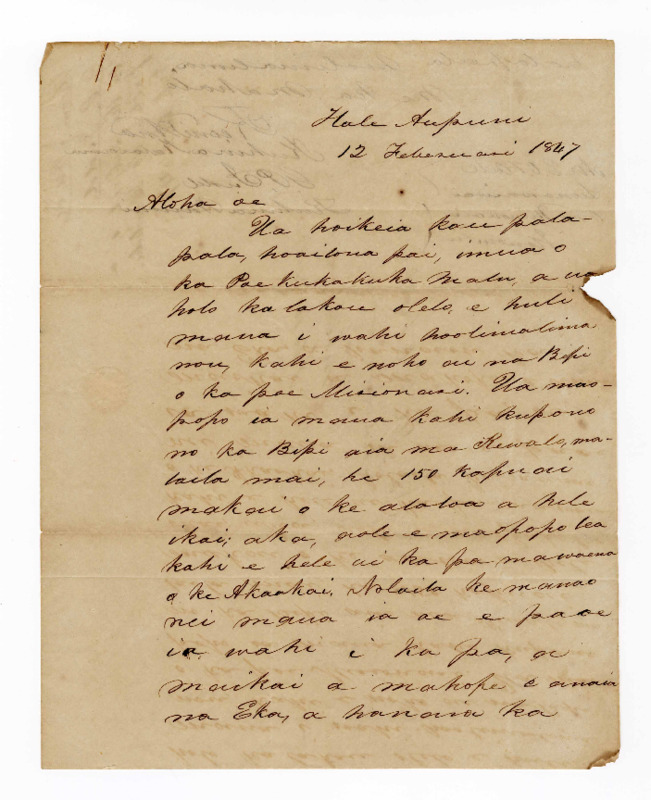 Hale Aupuni
12 Feberuari 1847
Aloha oe
Ua hoikeia kou pala-
pala, hooitoua pai, imua o
ka Poe kukakuka Malu, a ua
holo ka lakou olelo, e huli
maua i wahi hoolimalima
nou, kahi e noho ai na Bipi
o ka poe Misionari. Ua mao-
popo ia maua kahi kupono
no ka Bipi aia ma Kewalo, ma-
laila mai, he 150 kapuai
makai o ke alaloa a hele
ikai; aka, aole e maopopo lea
kahi e hele ai ka pa mawaena
o ke Akaakai. Nolaila ke manao
nei maua ia oe e paoe
ia wahi i ka pa, a
maikai a mahope e anaia
na Eka, a hanaia ka